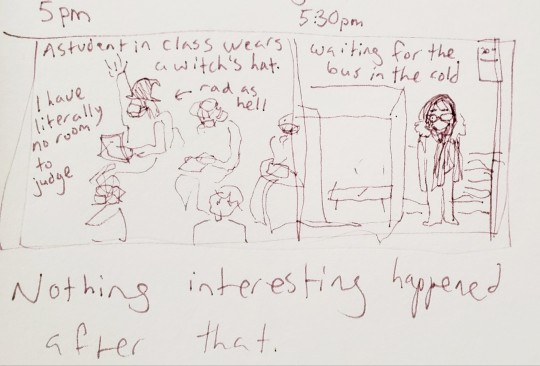 5pm
A student in class wears
a witch's hat.
I have
literally
no room
to
judge
← rad as
hell
5:30pm
waiting for the
bus in the cold
Nothing interesting happened
after that.